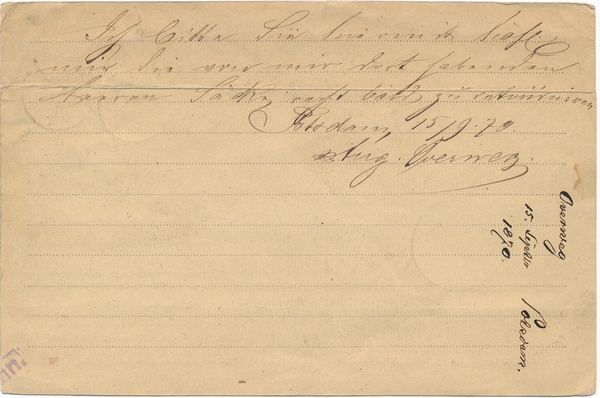 Ich bitte Sie hiermit höfl.
mir die von mir dort habenden
leeren Säcke recht bald zu retourniren
Potsdam, 15/9.70
Aug. Overweg.
Overweg
15. Septbr
1870.
Potsdam.